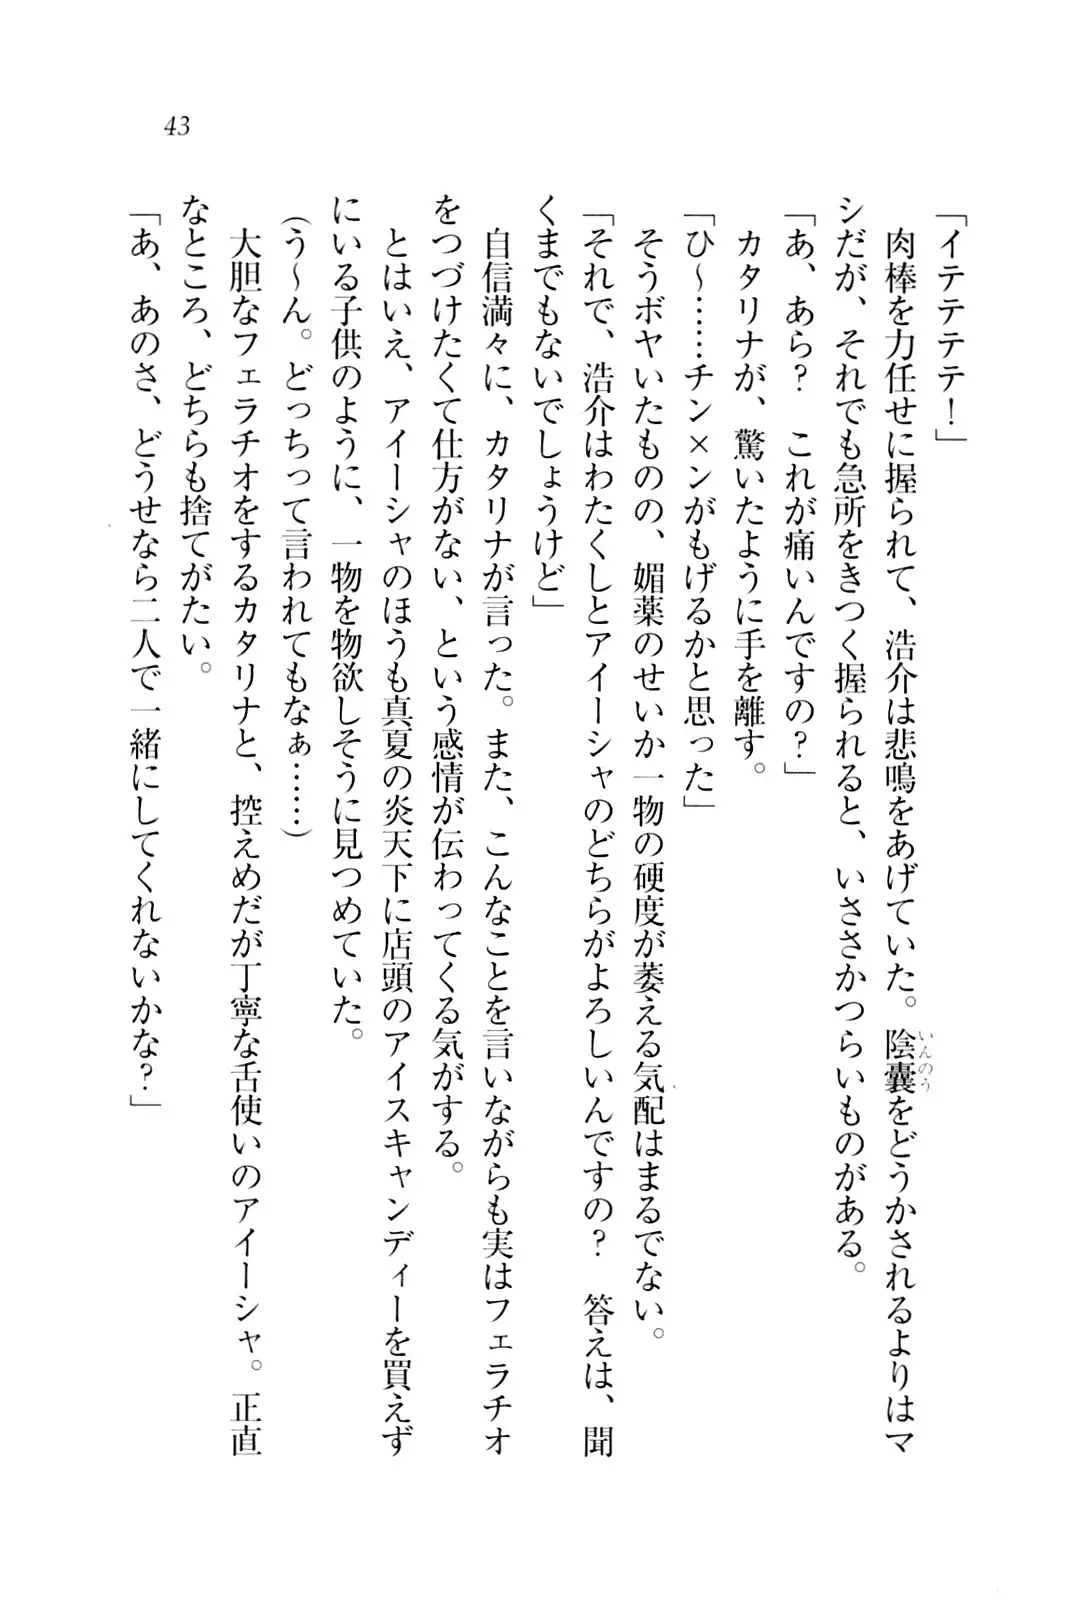 43
「イテテテテ！」
　肉棒を力任せに握られて、浩介は悲鳴をあげていた。陰嚢をどうかされるよりはマ
シだが、それでも急所をきつく握られると、いささかつらいものがある。
「あ、あら？　これが痛いんですの？」
　カタリナが、驚いたように手を離す。
「ひ〜……チン×ンがもげるかと思った」
　そうボヤいたものの、媚薬のせいか一物の硬度が萎える気配はまるでない。
「それで、浩介はわたくしとアイーシャのどちらがよろしいんですの？　答えは、聞
くまでもないでしょうけど」
　自信満々に、カタリナが言った。また、こんなことを言いながらも実はフェラチオ
をつづけたくて仕方がない、という感情が伝わってくる気がする。
　とはいえ、アイーシャのほうも真夏の炎天下に店頭のアイスキャンディーを買えず
にいる子供のように、一物を物欲しそうに見つめていた。
（う〜ん。どっちって言われてもなぁ……）
　大胆なフェラチオをするカタリナと、控えめだが丁寧な舌使いのアイーシャ。正直
なところ、どちらも捨てがたい。
「あ、あのさ、どうせなら二人で一緒にしてくれないかな？」
いんのう